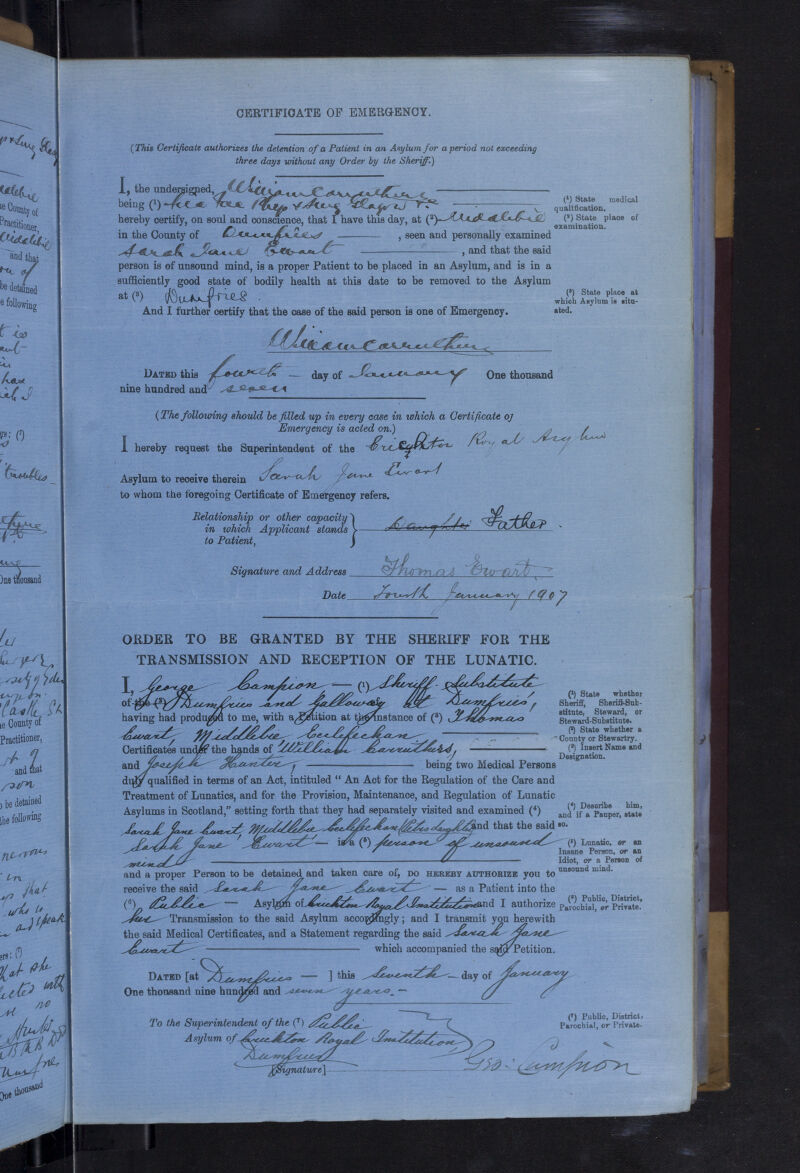 CERTIFICATE OF EMERGENCY.
(This Certificate authorizes the detention of a Patient in an Asylum for a period not exceeding
three days without any Order by the Sheriff.)
I, the undersigned, William Carruthers
being (¹)
hereby certify, on soul and conscience, that I have this day, at (²) Middlebie
in the County of Dumfries , seen and personally examined
Sarah Jane Ewart , and that the said
person is of unsound mind, is a proper Patient to be placed in an Asylum, and is in a
sufficiently good state of bodily health at this date to be removed to the Asylum
at (³) Dumfries .
And I further certify that the case of the said person is one of Emergency.
(¹) State medical
qualification.
(²) State place of
examination.
(³) State place at
which Asylum is situ-
ated.
William Carruthers
DATED this fourth — day of January One thousand
nine hundred and seven
(The following should be filled up in every case in which a Certificate of
Emergency is acted on.)
I hereby request the Superintendent of the Crichton Royal Asylum
Asylum to receive therein Sarah Jane Ewart
to whom the foregoing Certificate of Emergency refers.
Relationship or other capacity
in which Applicant stands
to Patient,
Daughter Father.
Signature and Address Thomas Ewart.
Date Fourth January 1907
ORDER TO BE GRANTED BY THE SHERIFF FOR THE
TRANSMISSION AND RECEPTION OF THE LUNATIC.
I, George Campion — (¹) Sheriff Substitute
of the (²) Dumfries and Galloway at Dumfries,
having had produced to me, with a Petition at the instance of (³) Thomas
Ewart, Middlebie, Ecclefechan
Certificates under the hands of William Carruthers,
and Joseph Hunter, being two Medical Persons
duly qualified in terms of an Act, intituled “ An Act for the Regulation of the Care and
Treatment of Lunatics, and for the Provision, Maintenance, and Regulation of Lunatic
Asylums in Scotland,” setting forth that they had separately visited and examined (⁴)
Sarah Jane Ewart, Middlebie Ecclefechan (Petrs daughter) and that the said
Sarah Jane Ewart — is a (⁵) person of unsound
mind
and a proper Person to be detained and taken care of, DO HEREBY AUTHORIZE you to
receive the said Sarah Jane Ewart — as a Patient into the
(⁶) Public — Asylum of Crichton Royal Institution and I authorize
her Transmission to the said Asylum accordingly; and I transmit you herewith
the said Medical Certificates, and a Statement regarding the said Sarah Jane
Ewart which accompanied the said Petition.
(¹) State whether
Sheriff, Sheriff-Sub-
stitute, Steward, or
Steward-Substitute.
(²) State whether a
County or Stewartry.
(³) Insert Name and
Designation.
(⁴) Describe him,
and if a Pauper, state
so.
(⁵) Lunatic, or an
Insane Person, or an
Idiot, or a Person of
unsound mind.
(⁶) Public, District,
Parochial, or Private.
DATED [at Dumfries — ] this Seventh — day of January
One thousand nine hundred and seven years.-
To the Superintendent of the (⁷) Public
Asylum of Crichton Royal Institution
Dumfries
(⁷) Public, District,
Parochial, or Private.
[Signature]
Geo: Campion